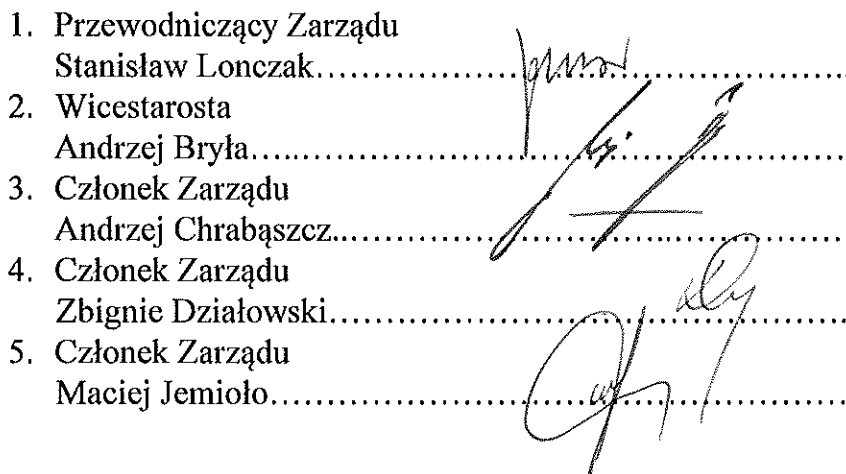 1. Przewodniczący Zarządu
Stanisław Lonczak........................................................
2. Wicestarosta
Andrzej Bryła........................................................
3. Członek Zarządu
Andrzej Chrabąszcz........................................................
4. Członek Zarządu
Zbignie Działowski........................................................
5. Członek Zarządu
Maciej Jemioło........................................................